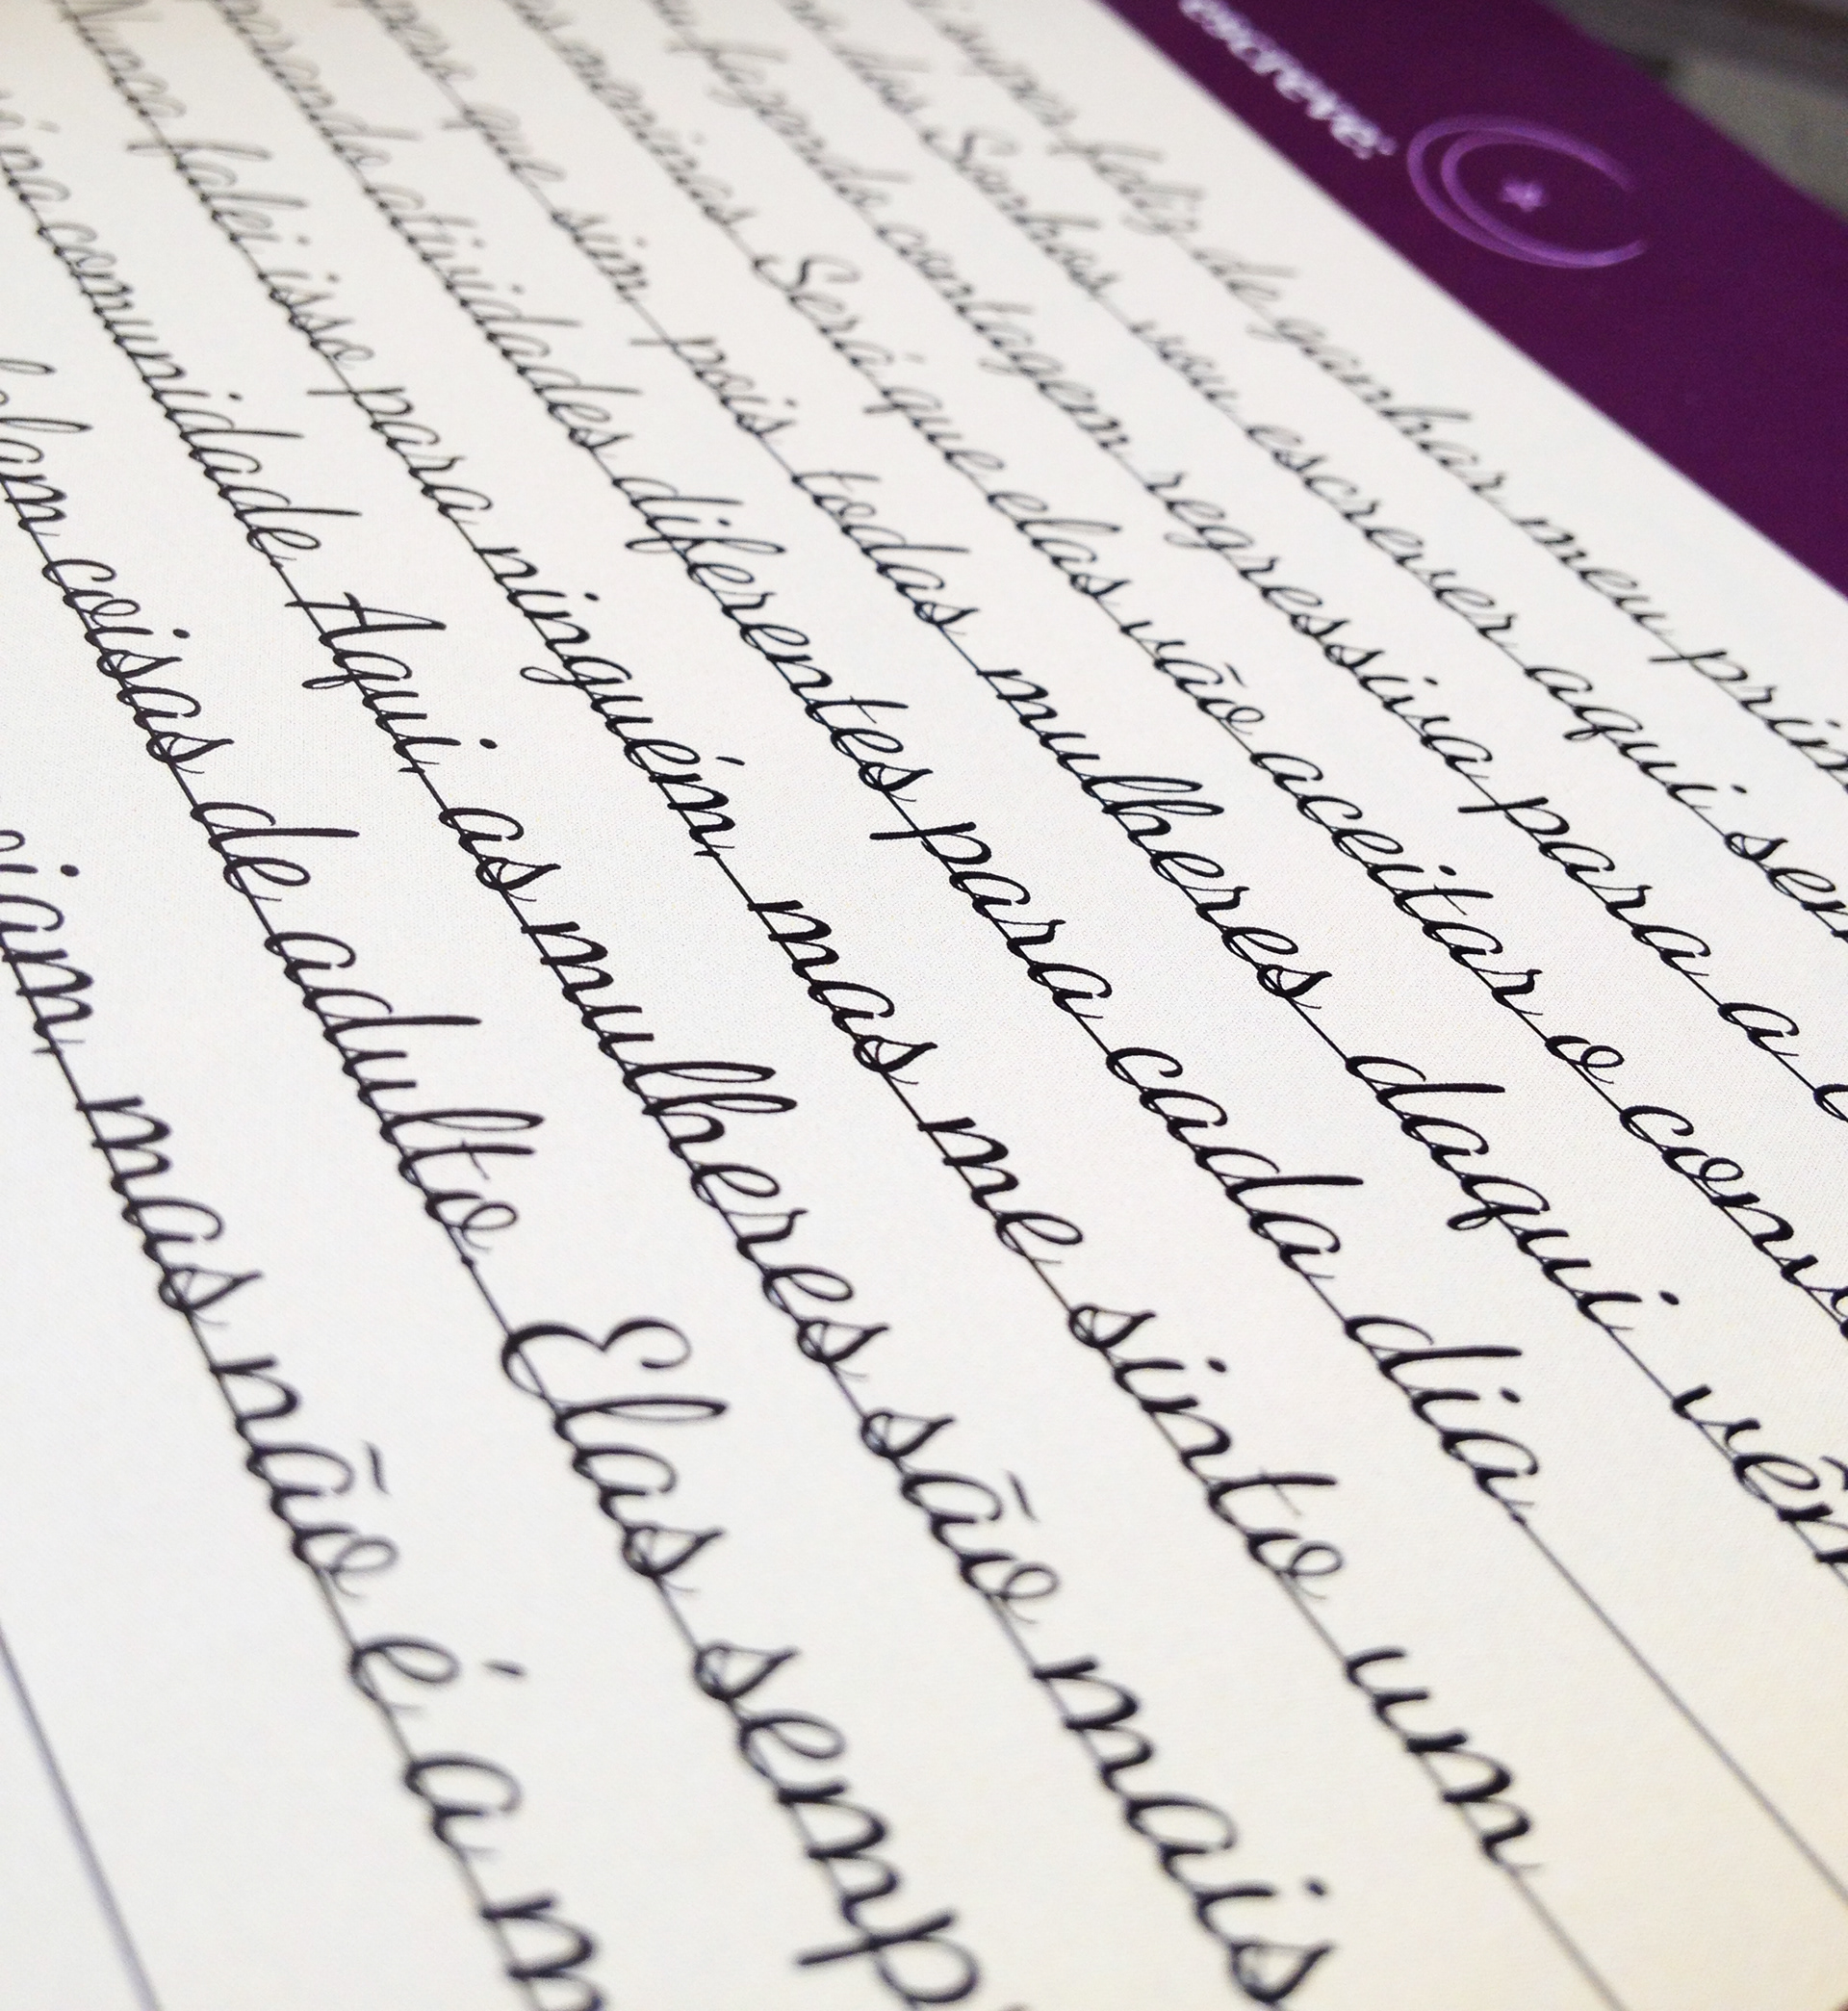 escreve:
super feliz de ganhar meu
dos Sonhos vou escrever aqui
fazendo contagem regressiva para a
meninas. Será que elas vão aceitar o
que sim pois todas mulheres daqui vêm
atividades diferentes para cada dia.
Nunca falei isso para ninguém, mas me sinto um
comunidade. Aqui, as mulheres são mais
coisas de adulto. Elas
mas não é a